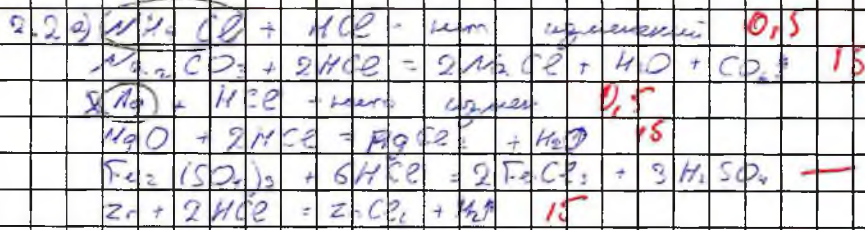 2.2 а) NH4Cl + HCl - нет изменений 0,5
Na2CO3 + 2HCl = 2NaCl + H2O + CO2↑ 1б
Ag + HCl - нет измен 0,5
MgO + 2HCl = MgCl2 + H2O 1б
Fe2(SO4)3 + 6HCl = 2FeCl3 + 3H2SO4 —
Zn + 2HCl = ZnCl2 + H2↑ 1б